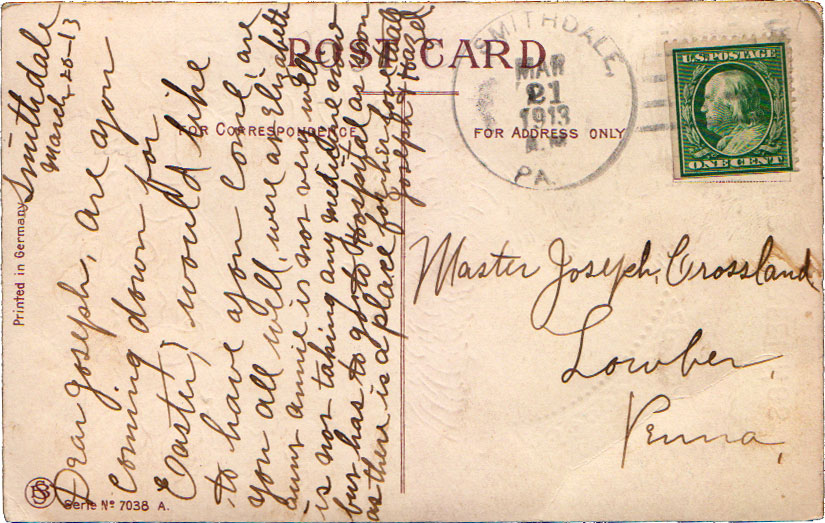 POST CARD
FOR CORRESPONDENCE
FOR ADDRESS ONLY
SMITHDALE,
MAR
21
1913
A.M.
PA.
U.S. POSTAGE
ONE CENT
Smithdale
March, 20-13
Dear Joseph, are you
coming down for
Easter, would like
to have you come, are
you all well, were at Elizabeth
aunt annie is not very well
is not taking any medicine now
but has to go to Hospital as soon
as there is a place for her, love to all
Joseph & Hazel
Master Joseph, Crossland
Lowber,
Penna,
Printed in Germany
Serie No 7038 A.